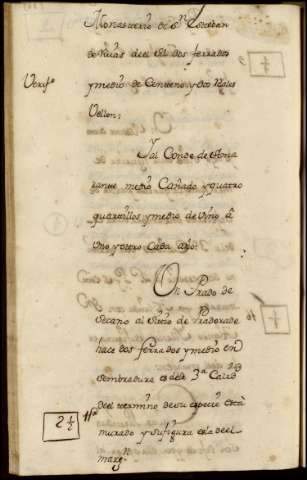 Monasterio de Sn Esteban
de Rivas de el Sil dos ferrados
y medio de Centeno y dos Reales
Vellon;
Y al Conde de Amarante medio Cañado y quatro
quartillos y medio de vino â
uno y otro Cada año.
Un Prado de
Secano al Sitio de Pradorade
hace dos ferrados y medio en
sembradura es de la 3ª Calidd
de el termino de su especie está
murado y su figura es la de el
margn
2 1/2